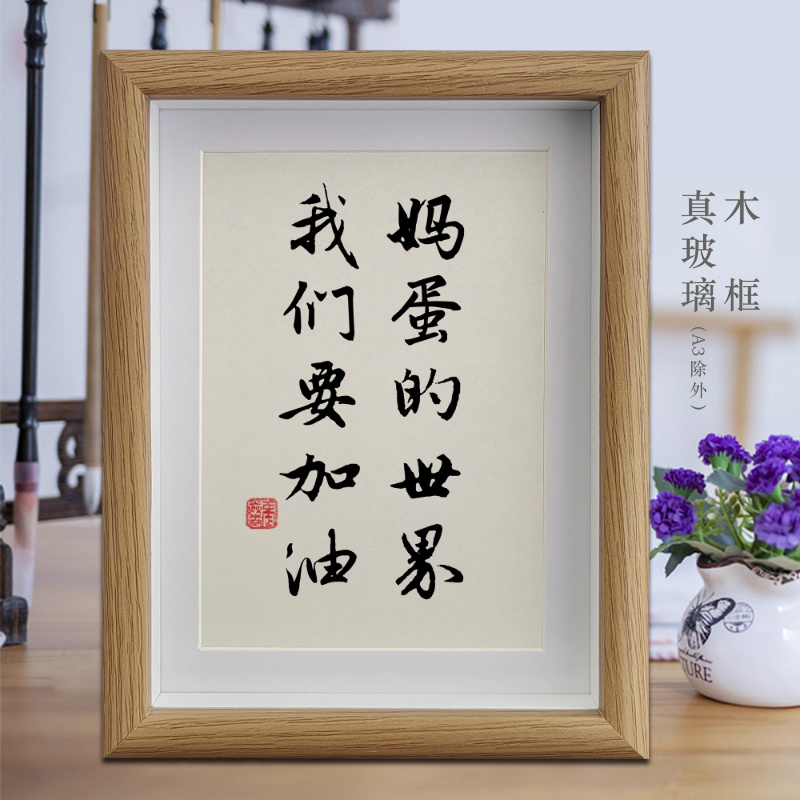 妈蛋的世界
我们要加油
木框
真玻璃(A3除外)
TURE